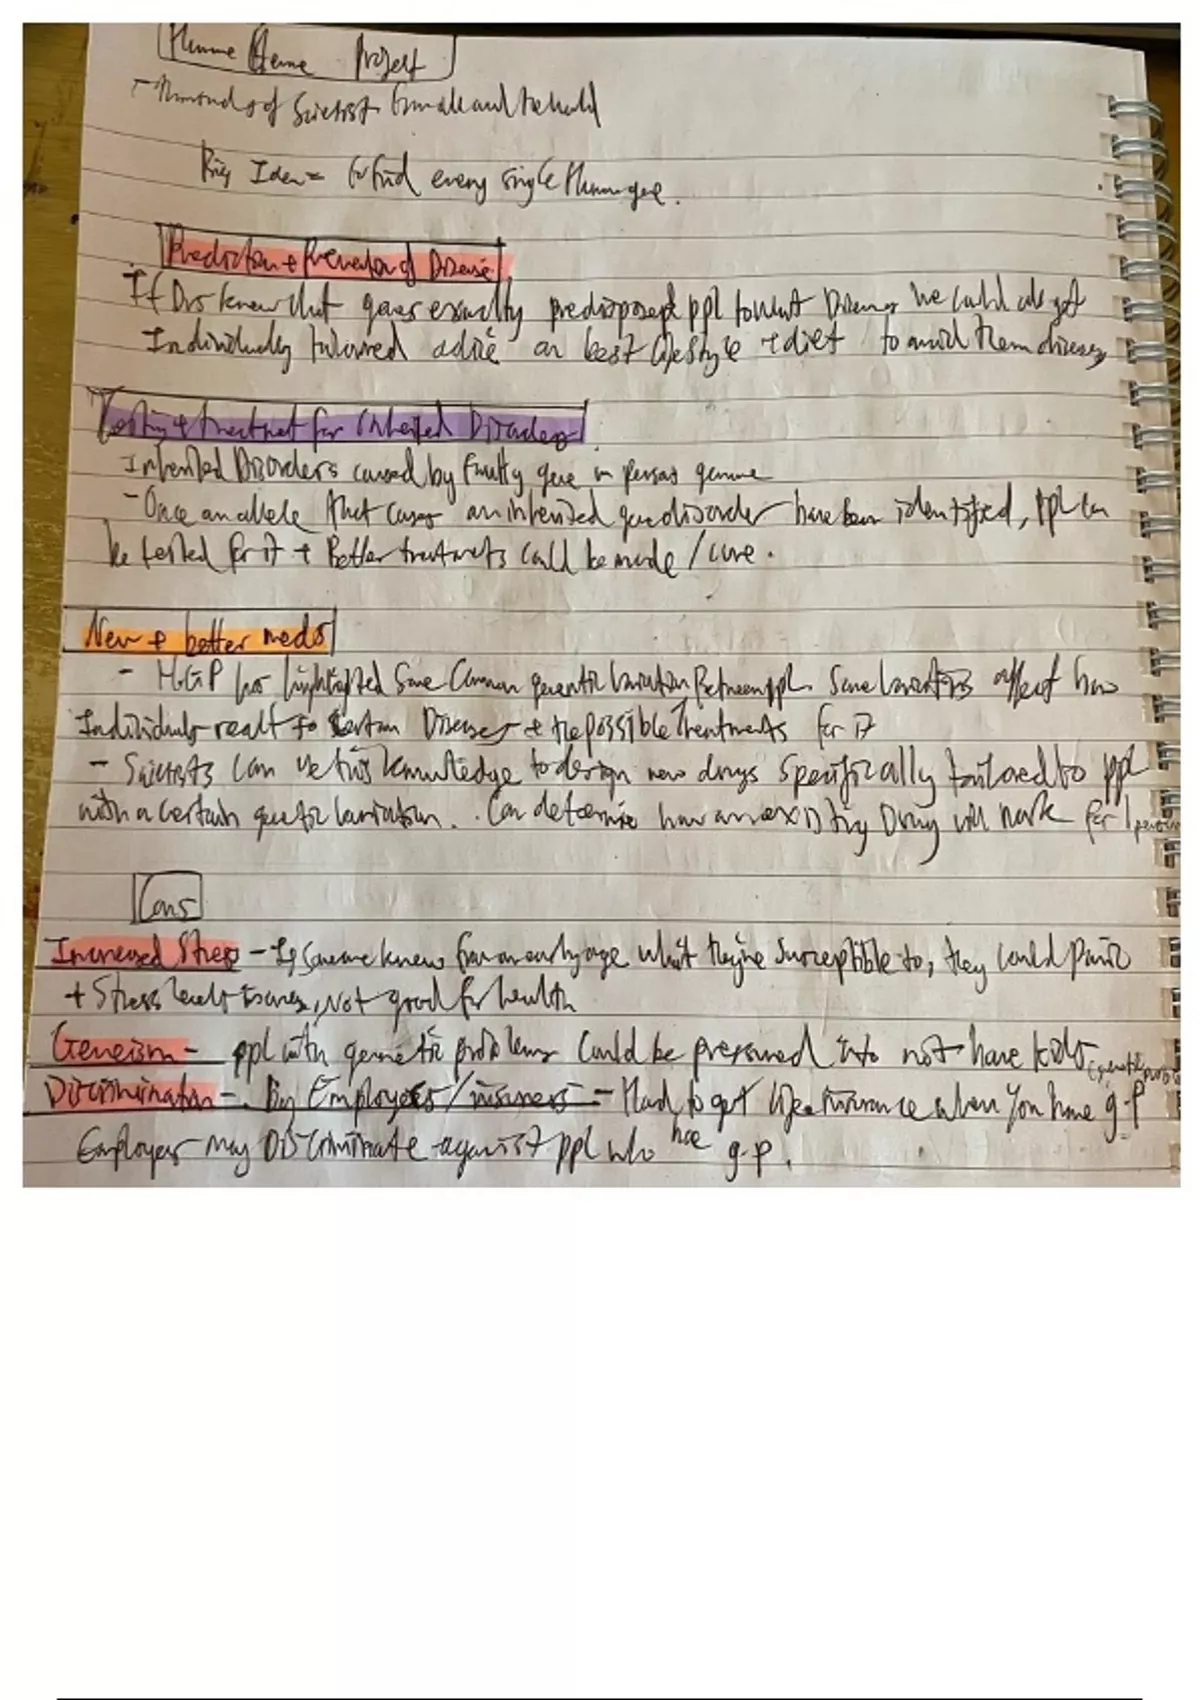 Humane Genne Project
- Thousands of Scientist from all around the world
Big Idea = to find every single Human gene.
Prediction + Prevention of Disease
If Drs knew that genes exactly predisposed ppl to what Diseases we could all get
Individually tailored advice on best lifestyle + diet to avoid them diseases
Testing + treatment for Inherited Disorders
Inherited Disorders caused by faulty gene in persons genome
- Once an allele that causes an inherited gene disorder have been identified, ppl can
be tested for it + Better treatments could be made / cure.
New + better meds
- HGP has highlighted Some Common genetic Variation Between ppl. Some variations affect how
Individuals react to certain Diseases + the possible Treatments for it
- Scientists can use this knowledge to design new drugs specifically tailored to ppl
with a certain genetic variation. Can determine how an existing Drug will work for 1 person
Cons
Increased Stress - If someone knew from an early age what they're susceptible to, they could panic
+ Stress levels, Not good for health
Geneism - ppl with genetic problems Could be pressured into not have kids (genetic prob
Discrimination - By Employers/insurers - Hard to get life insurance when you have g-p
Employer may Discriminate against ppl who have g.p.